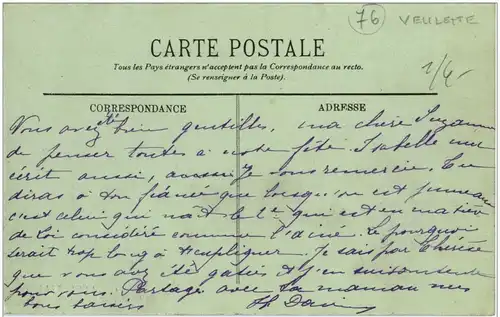 76 VEULETTE
CARTE POSTALE
Tous les Pays étrangers n'acceptent pas la Correspondance au recto.
(Se renseigner à la Poste).
1/4
CORRESPONDANCE ADRESSE
Vous avez été bien gentilles, ma chère Suzanne
de penser toutes à notre fête. Isabelle me
écrit aussi, aussi je vous remercie. Tu
diras à ton fiancé que lorsqu'on est jumeaux
c'est celui qui naît le 2e qui est en matière
de loi considéré comme l'aîné. Le pourquoi
serait trop long à t'expliquer. Je sais par Thérèse
que vous avez été gâtés et j'en suis contente
pour vous. Partage avec ta maman mes
bons baisers